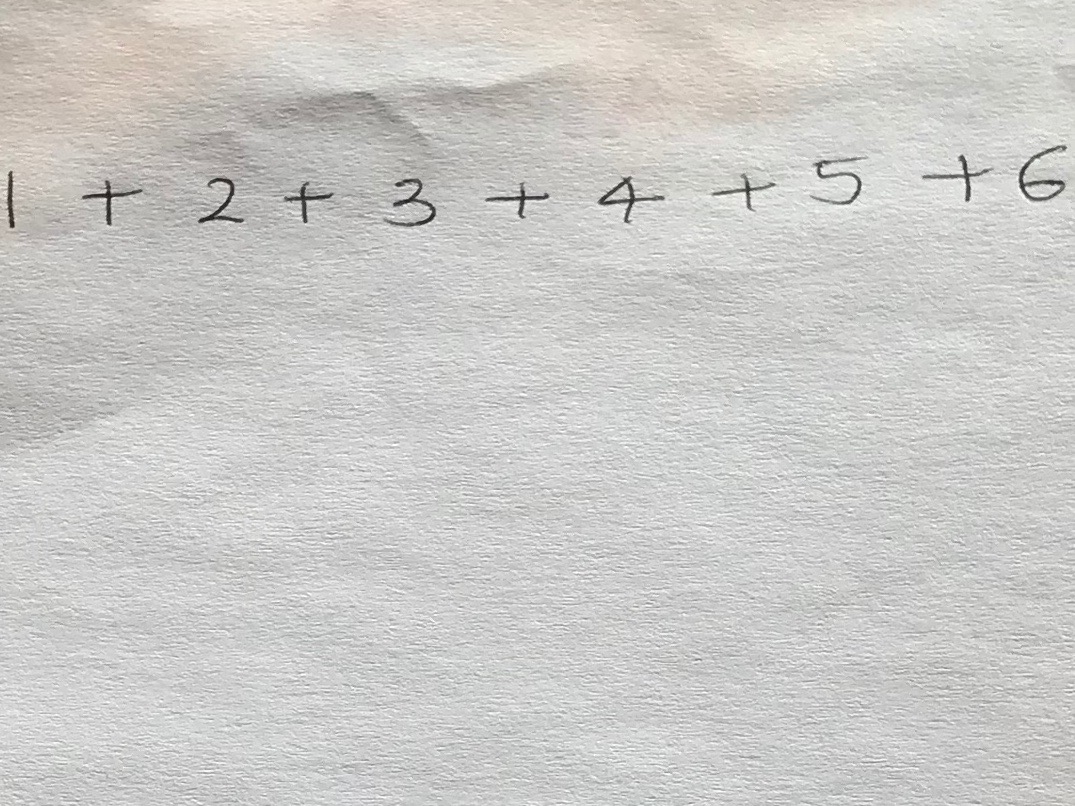 1 + 2 + 3 + 4 + 5 + 6